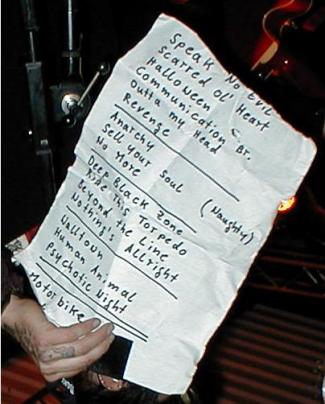 Speak No Evil
Scarred Old Heart
Halloween
Communication Br.
Outta my Head
Revenge
Anarchy
Sell your Soul
No More (Naughty)
Deep Black Zone
Ride This Torpedo
Beyond The Line
Nothing's Allright
Volltoun
Human Animal
Psychotic Night
Motorbike